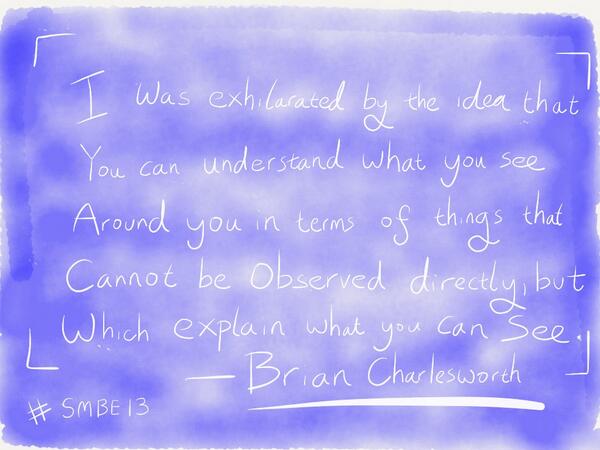 I was exhilarated by the idea that
You can understand what you see
Around you in terms of things that
Cannot be Observed directly, but
Which explain what you can See.
— Brian Charlesworth
# SMBE13